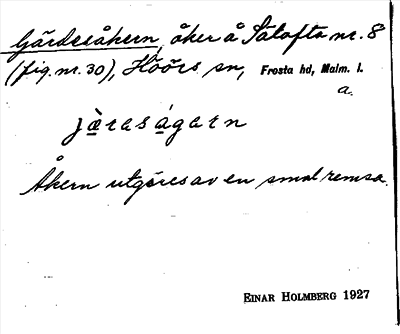 Gärdesåkern, åker å Sätofta nr. 8
(fig. nr. 30), Höörs sn, Frosta hd, Malm. l.
a.
jæ̀raságarn
Åkern utgöres av en smal remsa.
EINAR HOLMBERG 1927